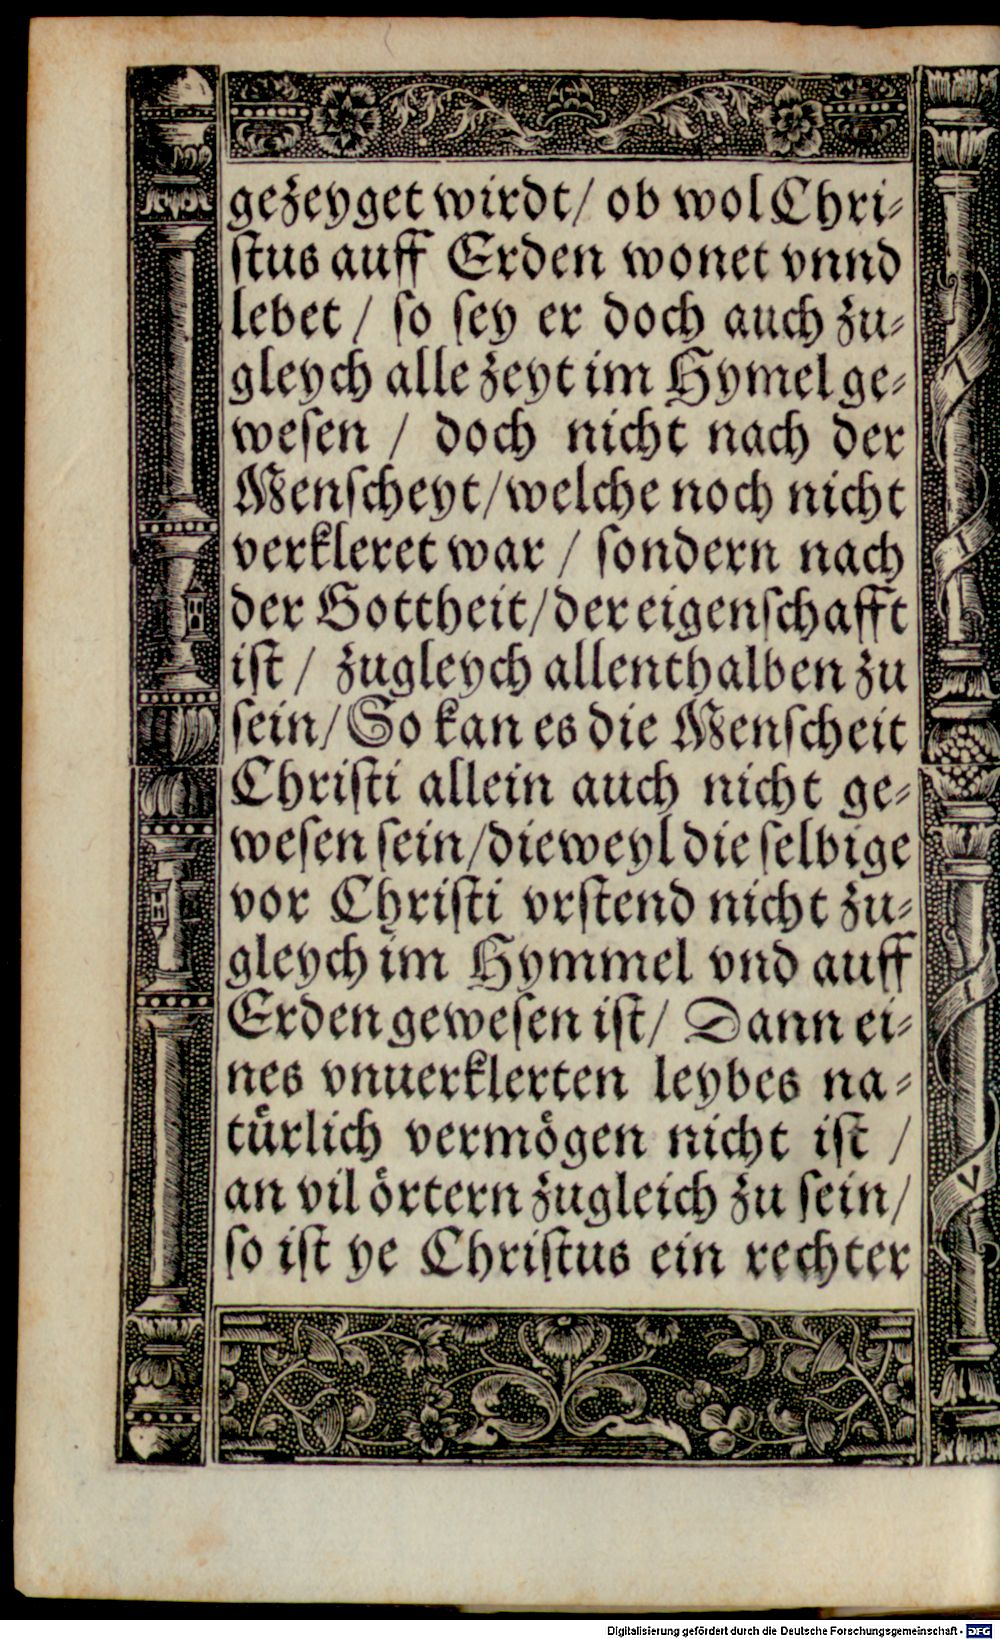 gezeyget wirdt/ ob wol Chri⸗
ſtus auff Erden wonet vnnd
lebet / ſo ſey er doch auch zu⸗
gleych alle zeyt im Hymel ge⸗
weſen / doch nicht nach der
Menſcheyt/welche noch nicht
verkleret war / ſondern nach
der Gottheit/der eigenſchafft
iſt / zugleych allenthalben zu
ſein/ So kan es die Menſcheit
Chriſti allein auch nicht ge⸗
weſen ſein/dieweyl die ſelbige
vor Chriſti vrſtend nicht zu⸗
gleych im Hymmel vnd auff
Erden geweſen iſt/ Dann ei⸗
nes vnuerklerten leybes na⸗
türlich vermögen nicht iſt /
an vil örtern zugleich zu ſein/
ſo iſt ye Chriſtus ein rechter
Digitalisierung gefördert durch die Deutsche Forschungsgemeinschaft - DFG